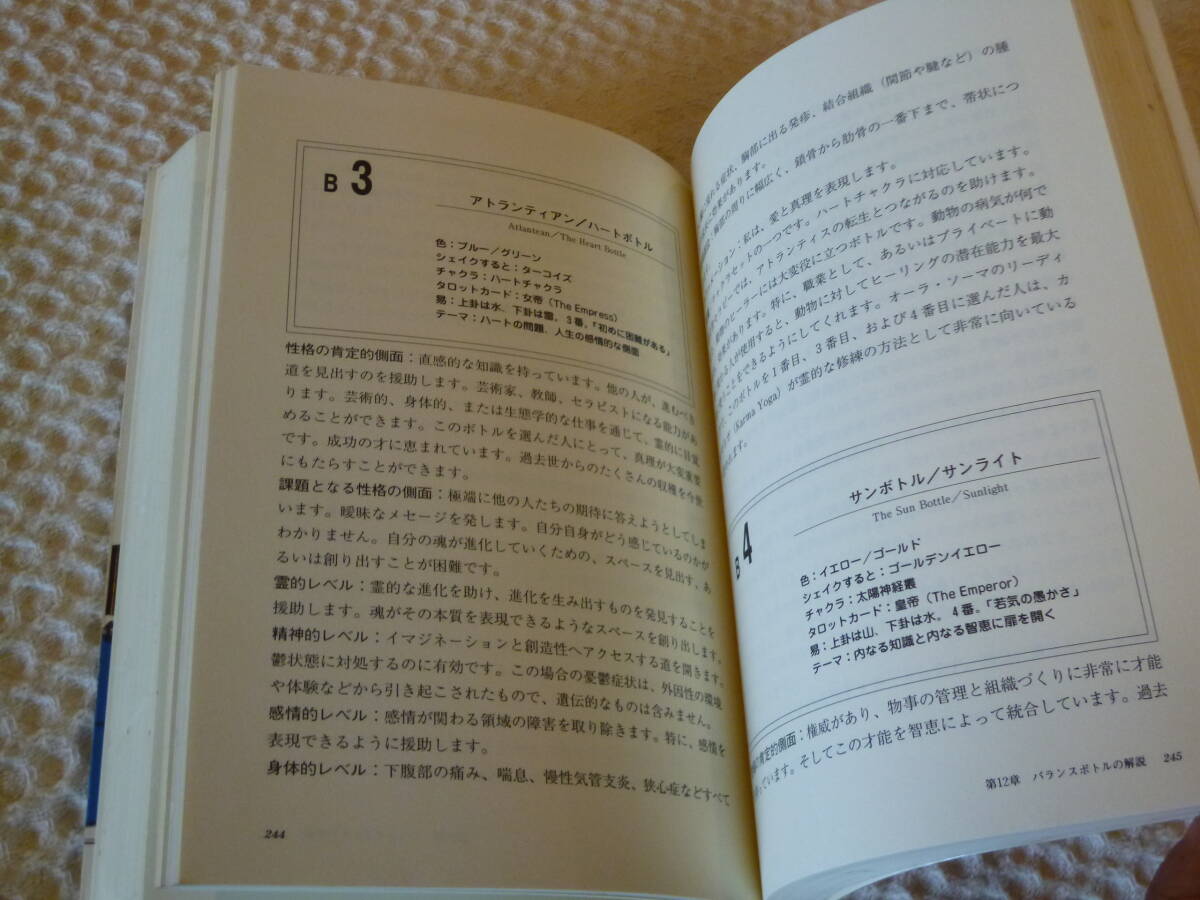 B 3
アトランティアン／ハートボトル
Atlantean／The Heart Bottle
色：ブルー／グリーン
シェイクすると：ターコイズ
チャクラ：ハートチャクラ
タロットカード：女帝（The Empress）
易：上卦は水、下卦は雷。3番。「初めに困難がある」
テーマ：ハートの問題、人生の感情的な側面
性格の肯定的側面：直感的な知識を持っています。他の人が、進むべき
道を見出すのを援助します。芸術家、教師、セラピストになる能力があ
ります。芸術的、身体的、または生態学的な仕事を通じて、霊的に目覚
めることができます。このボトルを選んだ人にとって、真理が大変重要
です。成功の才に恵まれています。過去世からのたくさんの収穫を今世
にもたらすことができます。
課題となる性格の側面：極端に他の人たちの期待に答えようとしてしま
います。曖昧なメセージを発します。自分自身がどう感じているのかが
わかりません。自分の魂が進化していくための、スペースを見出す、あ
るいは創り出すことが困難です。
霊的レベル：霊的な進化を助け、進化を生み出すものを発見することを
援助します。魂がその本質を表現できるようなスペースを創り出します。
精神的レベル：イマジネーションと創造性へアクセスする道を開きます。
鬱状態に対処するのに有効です。この場合の憂鬱症状は、外因性の環境
や体験などから引き起こされたもので、遺伝的なものは含みません。
感情的レベル：感情が関わる領域の障害を取り除きます。特に、感情を
表現できるように援助します。
身体的レベル：下腹部の痛み、喘息、慢性気管支炎、狭心症などすべて
244
れる症状、胸部に出る発疹、結合組織（関節や腱など）の腫
効果があります。
胸部の周りに幅広く、鎖骨から肋骨の一番下まで、帯状につ
ーション：私は、愛と真理を表現します。
チャクラセットの一つです。ハートチャクラに対応しています。
ピーでは、アトランティスの転生とつながるのを助けます。
物のヒーラーには大変役に立つボトルです。動物の病気が何で
効果があります。特に、職業として、あるいはプライベートに動
る人が使用すると、動物に対してヒーリングの潜在能力を最大
ことをできるようにしてくれます。オーラ・ソーマのリーディ
このボトルを1番目、3番目、および4番目に選んだ人は、カ
（Karma Yoga）が霊的な修練の方法として非常に向いている
ます。
B 4
サンボトル／サンライト
The Sun Bottle／Sunlight
色：イエロー／ゴールド
シェイクすると：ゴールデンイエロー
チャクラ：太陽神経叢
タロットカード：皇帝（The Emperor）
易：上卦は山、下卦は水。4番。「若気の愚かさ」
テーマ：内なる知識と内なる智恵に扉を開く
の肯定的側面：権威があり、物事の管理と組織づくりに非常に才能
っています。そしてこの才能を智恵によって統合しています。過去
第12章 バランスボトルの解説 245